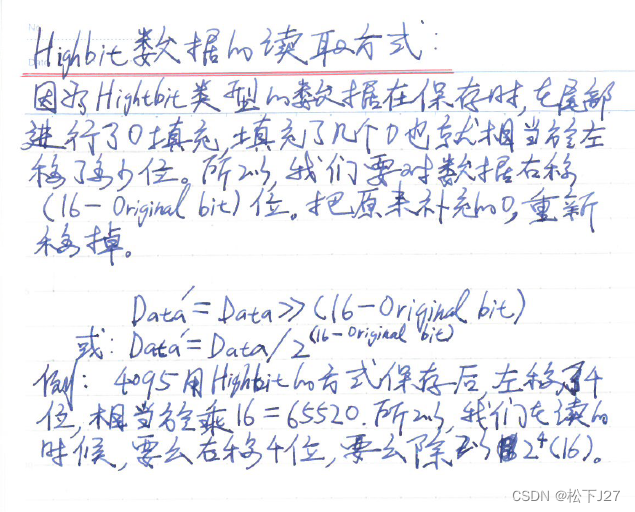 Highbit数据的读取方式:
因为Hightbit类型的数据在保存时,在尾部
进行了0填充,填充了几个0也就相当于左
移了多少位。所以,我们要对数据右移
(16-Original bit)位。把原来补充的0,重新
移掉。
Data′=Data>>(16-Original bit)
或:Data′=Data/2^(16-Original bit)
例:4095用Highbit的方式保存后,左移了4
位,相当于乘16=65520.所以,我们在读的
时候,要么右移4位,要么除以2⁴(16)。
CSDN @松下J27